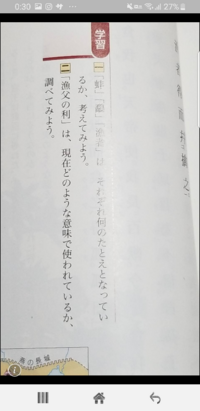 0:30
27%
学習
一 「蚌」「鷸」「漁者」は、それぞれ何のたとえとなってい
るか、考えてみよう。
二 「漁父の利」は、現在どのような意味で使われているか、
調べてみよう。
の長城